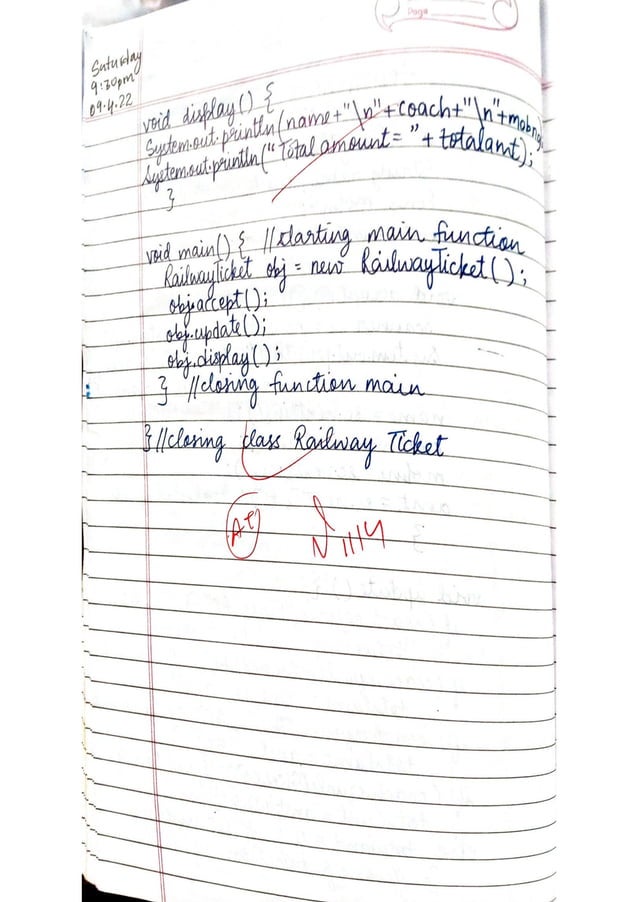 Page
Saturday
9:30pm
09.4.22
void display() {
System.out.println(name+"\n"+coach+"\n"+mobno
System.out.println("Total amount= "+ totalamt);
}
void main() { //starting main function
RailwayTicket obj = new RailwayTicket();
obj.accept();
obj.update();
obj.display();
} //closing function main
}//closing class Railway Ticket
A+
11/4